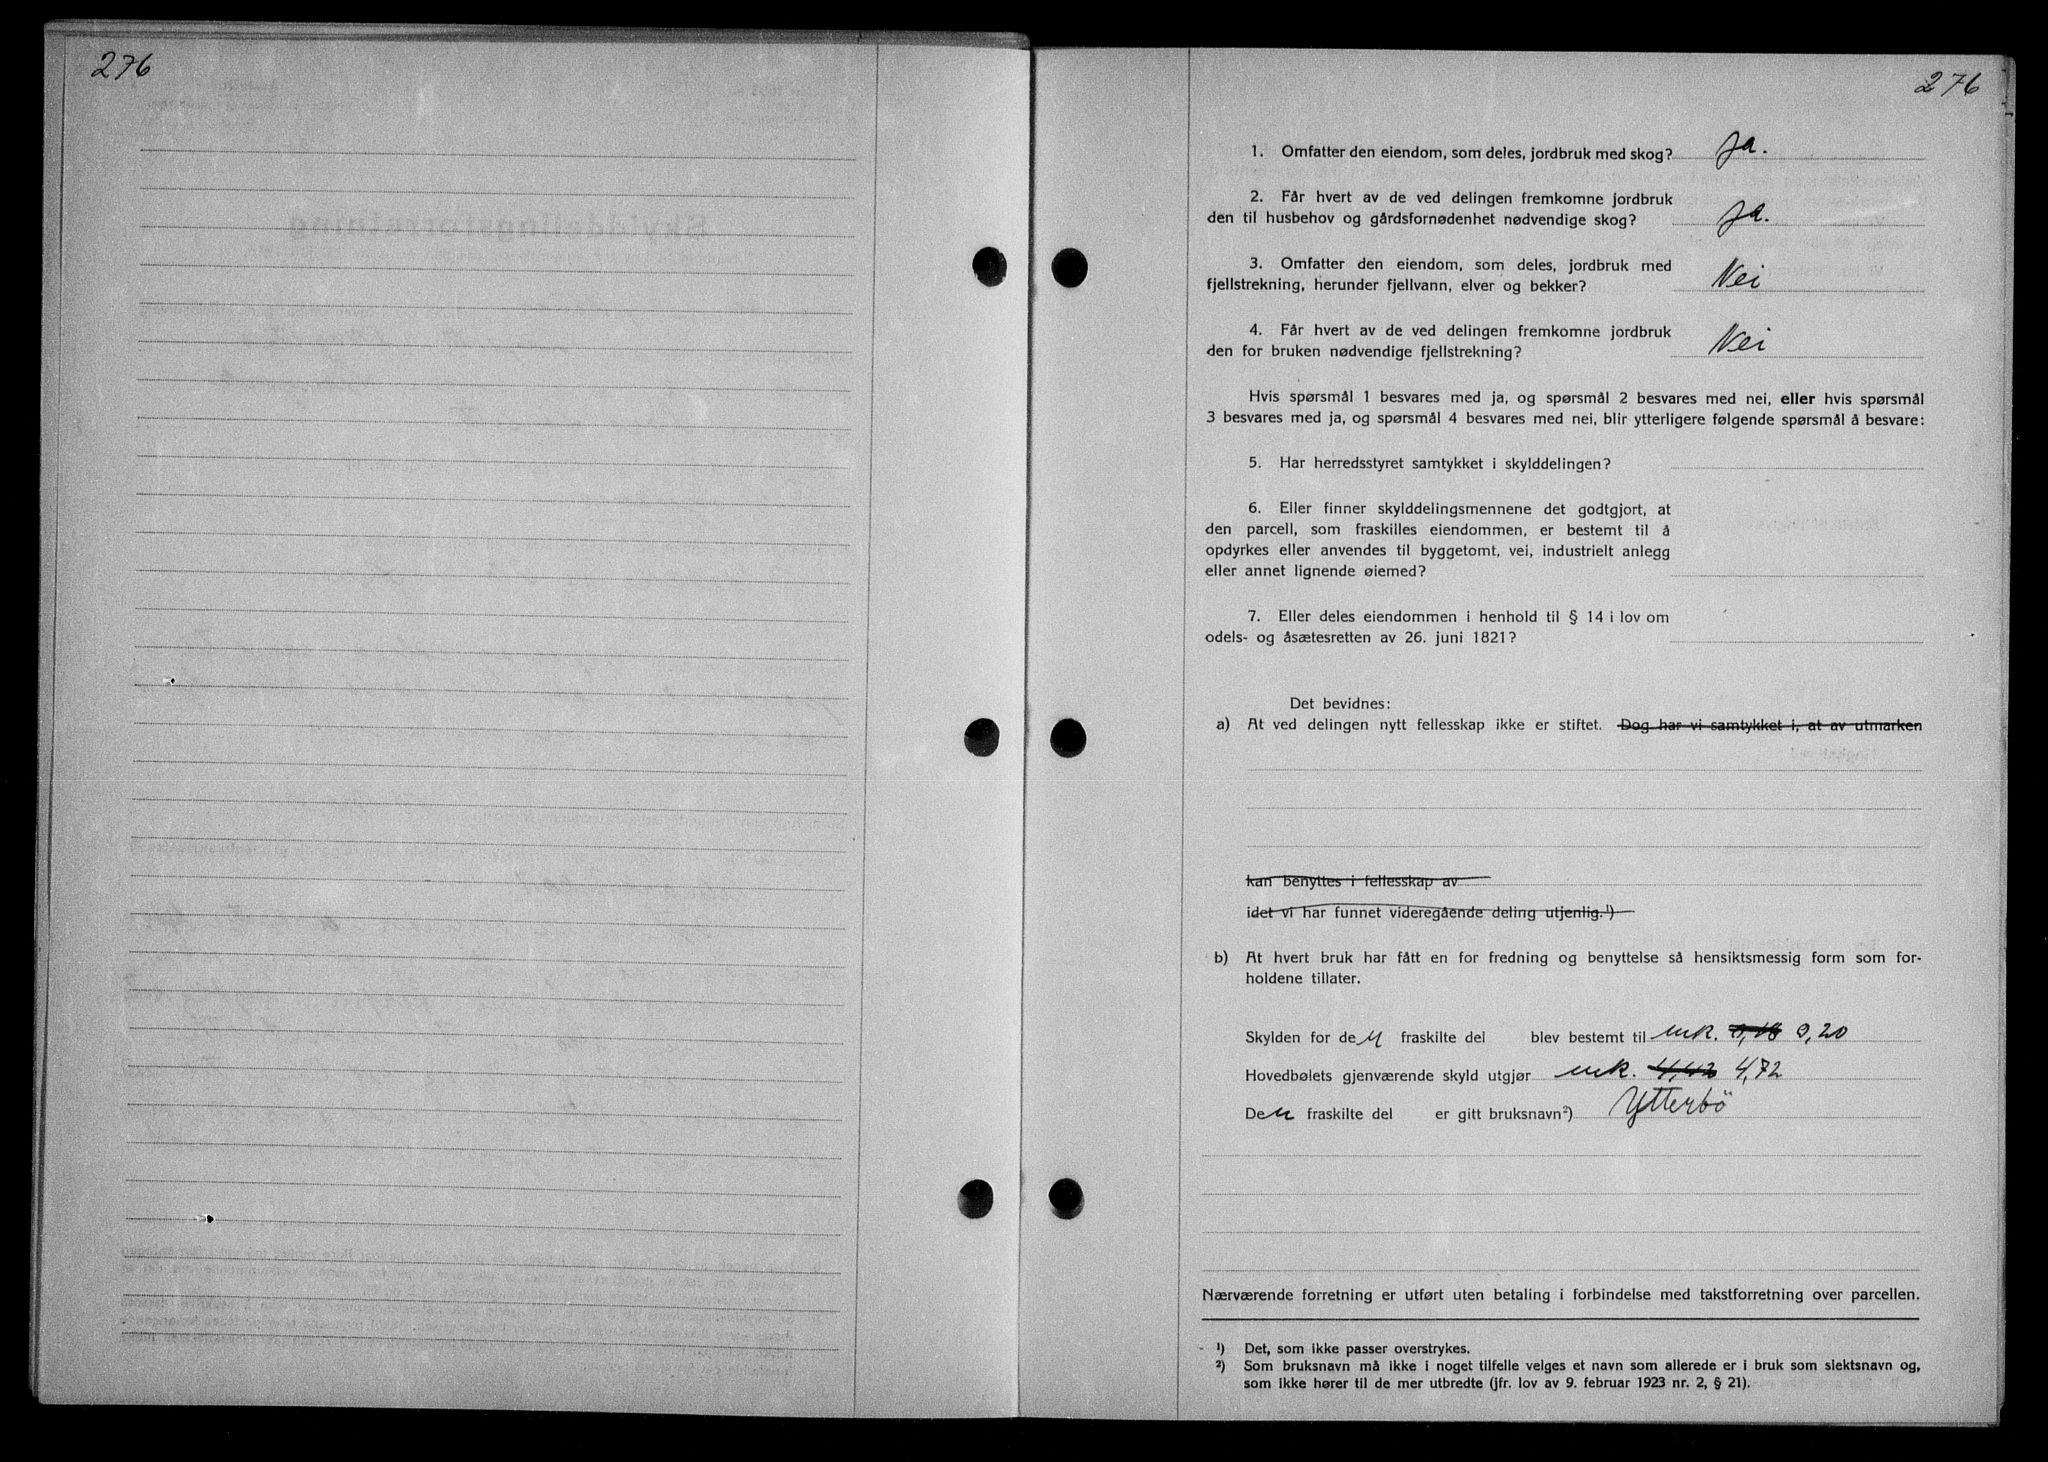 276
276
1. Omfatter den eiendom, som deles, jordbruk med skog? Ja.
2. Får hvert av de ved delingen fremkomne jordbruk
den til husbehov og gårdsfornødenhet nødvendige skog? Ja.
3. Omfatter den eiendom, som deles, jordbruk med
fjellstrekning, herunder fjellvann, elver og bekker? Nei
4. Får hvert av de ved delingen fremkomne jordbruk
den for bruken nødvendige fjellstrekning? Nei
Hvis spørsmål 1 besvares med ja, og spørsmål 2 besvares med nei, eller hvis spørsmål
3 besvares med ja, og spørsmål 4 besvares med nei, blir ytterligere følgende spørsmål å besvare:
5. Har herredsstyret samtykket i skylddelingen?
6. Eller finner skylddelingsmennene det godtgjort, at
den parcell, som fraskilles eiendommen, er bestemt til å
opdyrkes eller anvendes til byggetomt, vei, industrielt anlegg
eller annet lignende øiemed?
7. Eller deles eiendommen i henhold til § 14 i lov om
odels- og åsætesretten av 26. juni 1821?
Det bevidnes:
a) At ved delingen nytt fellesskap ikke er stiftet. Dog har vi samtykket i, at av utmarken
kan benyttes i fellesskap av
idet vi har funnet videregående deling utjenlig.¹)
b) At hvert bruk har fått en for fredning og benyttelse så hensiktsmessig form som for-
holdene tillater.
Skylden for den fraskilte del blev bestemt til mk. 0,20
Hovedbølets gjenværende skyld utgjør mk. 4,42 4,72
Den fraskilte del er gitt bruksnavn²) Ytterbö
Nærværende forretning er utført uten betaling i forbindelse med takstforretning over parcellen.
¹) Det, som ikke passer overstrykes.
²) Som bruksnavn må ikke i noget tilfelle velges et navn som allerede er i bruk som slektsnavn og,
som ikke hører til de mer utbredte (jfr. lov av 9. februar 1923 nr. 2, § 21).